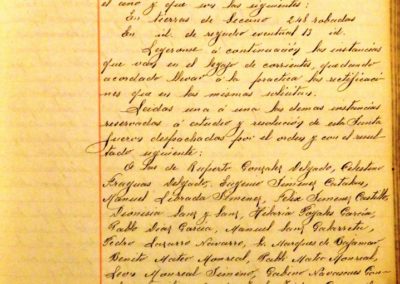 el uno y que son las siguientes:
En tierras de secano 248 robadas
En id. de regadio eventual 13 id.
Leyeronse á continuación las instancias
que van en el legajo de corrientes, quedando
acordado llevar á la practica las rectificacio
nes que en las mismas solicitan.
Leidas una á una las demas instancias
reservadas á estudio y resolución de esta Junta
fueron despachadas por el orden y con el resul-
tado siguiente:
Á las de Ruperto Gonzalez Delgado, Celestino
Fraguas Delgado, Eugenio Jimenez Castaños,
Manuel Librada Jimenez, Felix Jimenez Castillo,
Dionisia Sanz y Sanz, Hilaria Pajales Garcia,
Pablo Diaz Garcia, Manuel Sanz Galarreta,
Pedro Lazarro Navarro, Sr. Marques de Bajamar
Benito Mateo Monreal, Pablo Mateo Monreal,
Leon Monreal Jimeno, Gabino Navascues